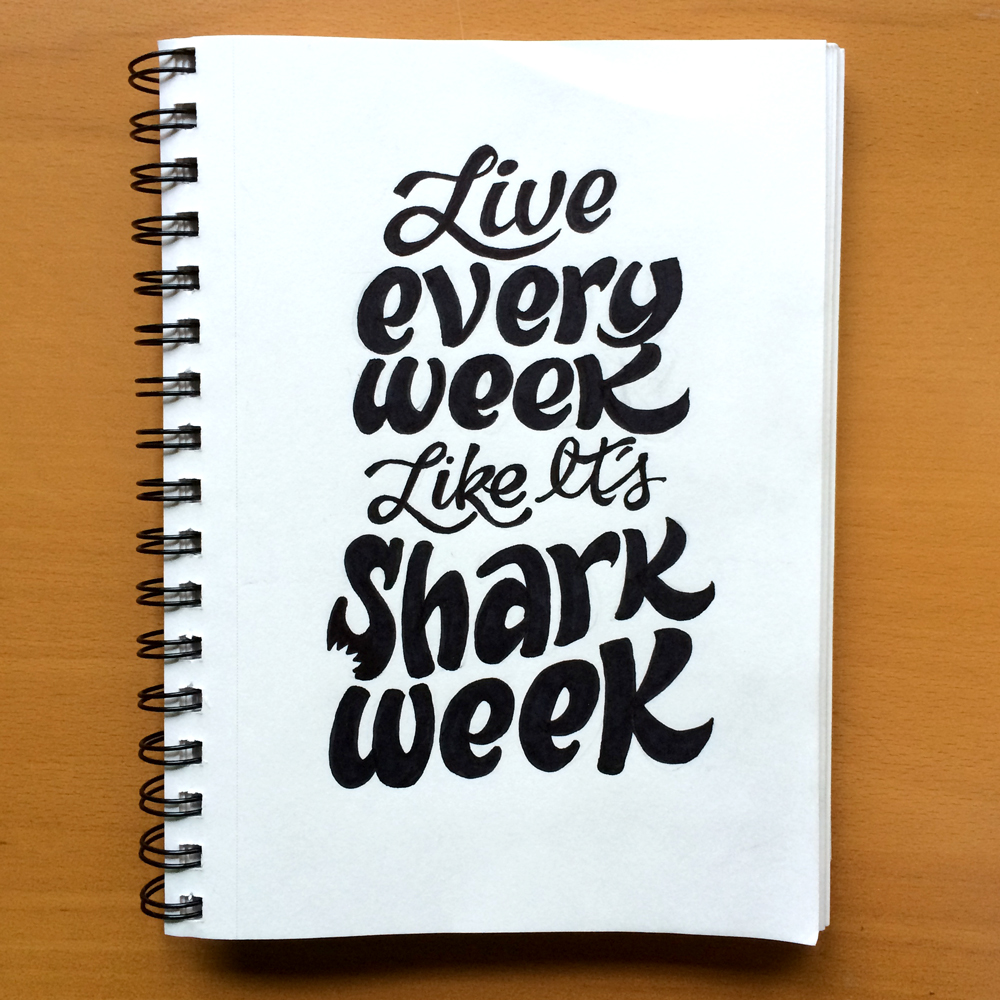 Live
every
week
Like It's
Shark
week